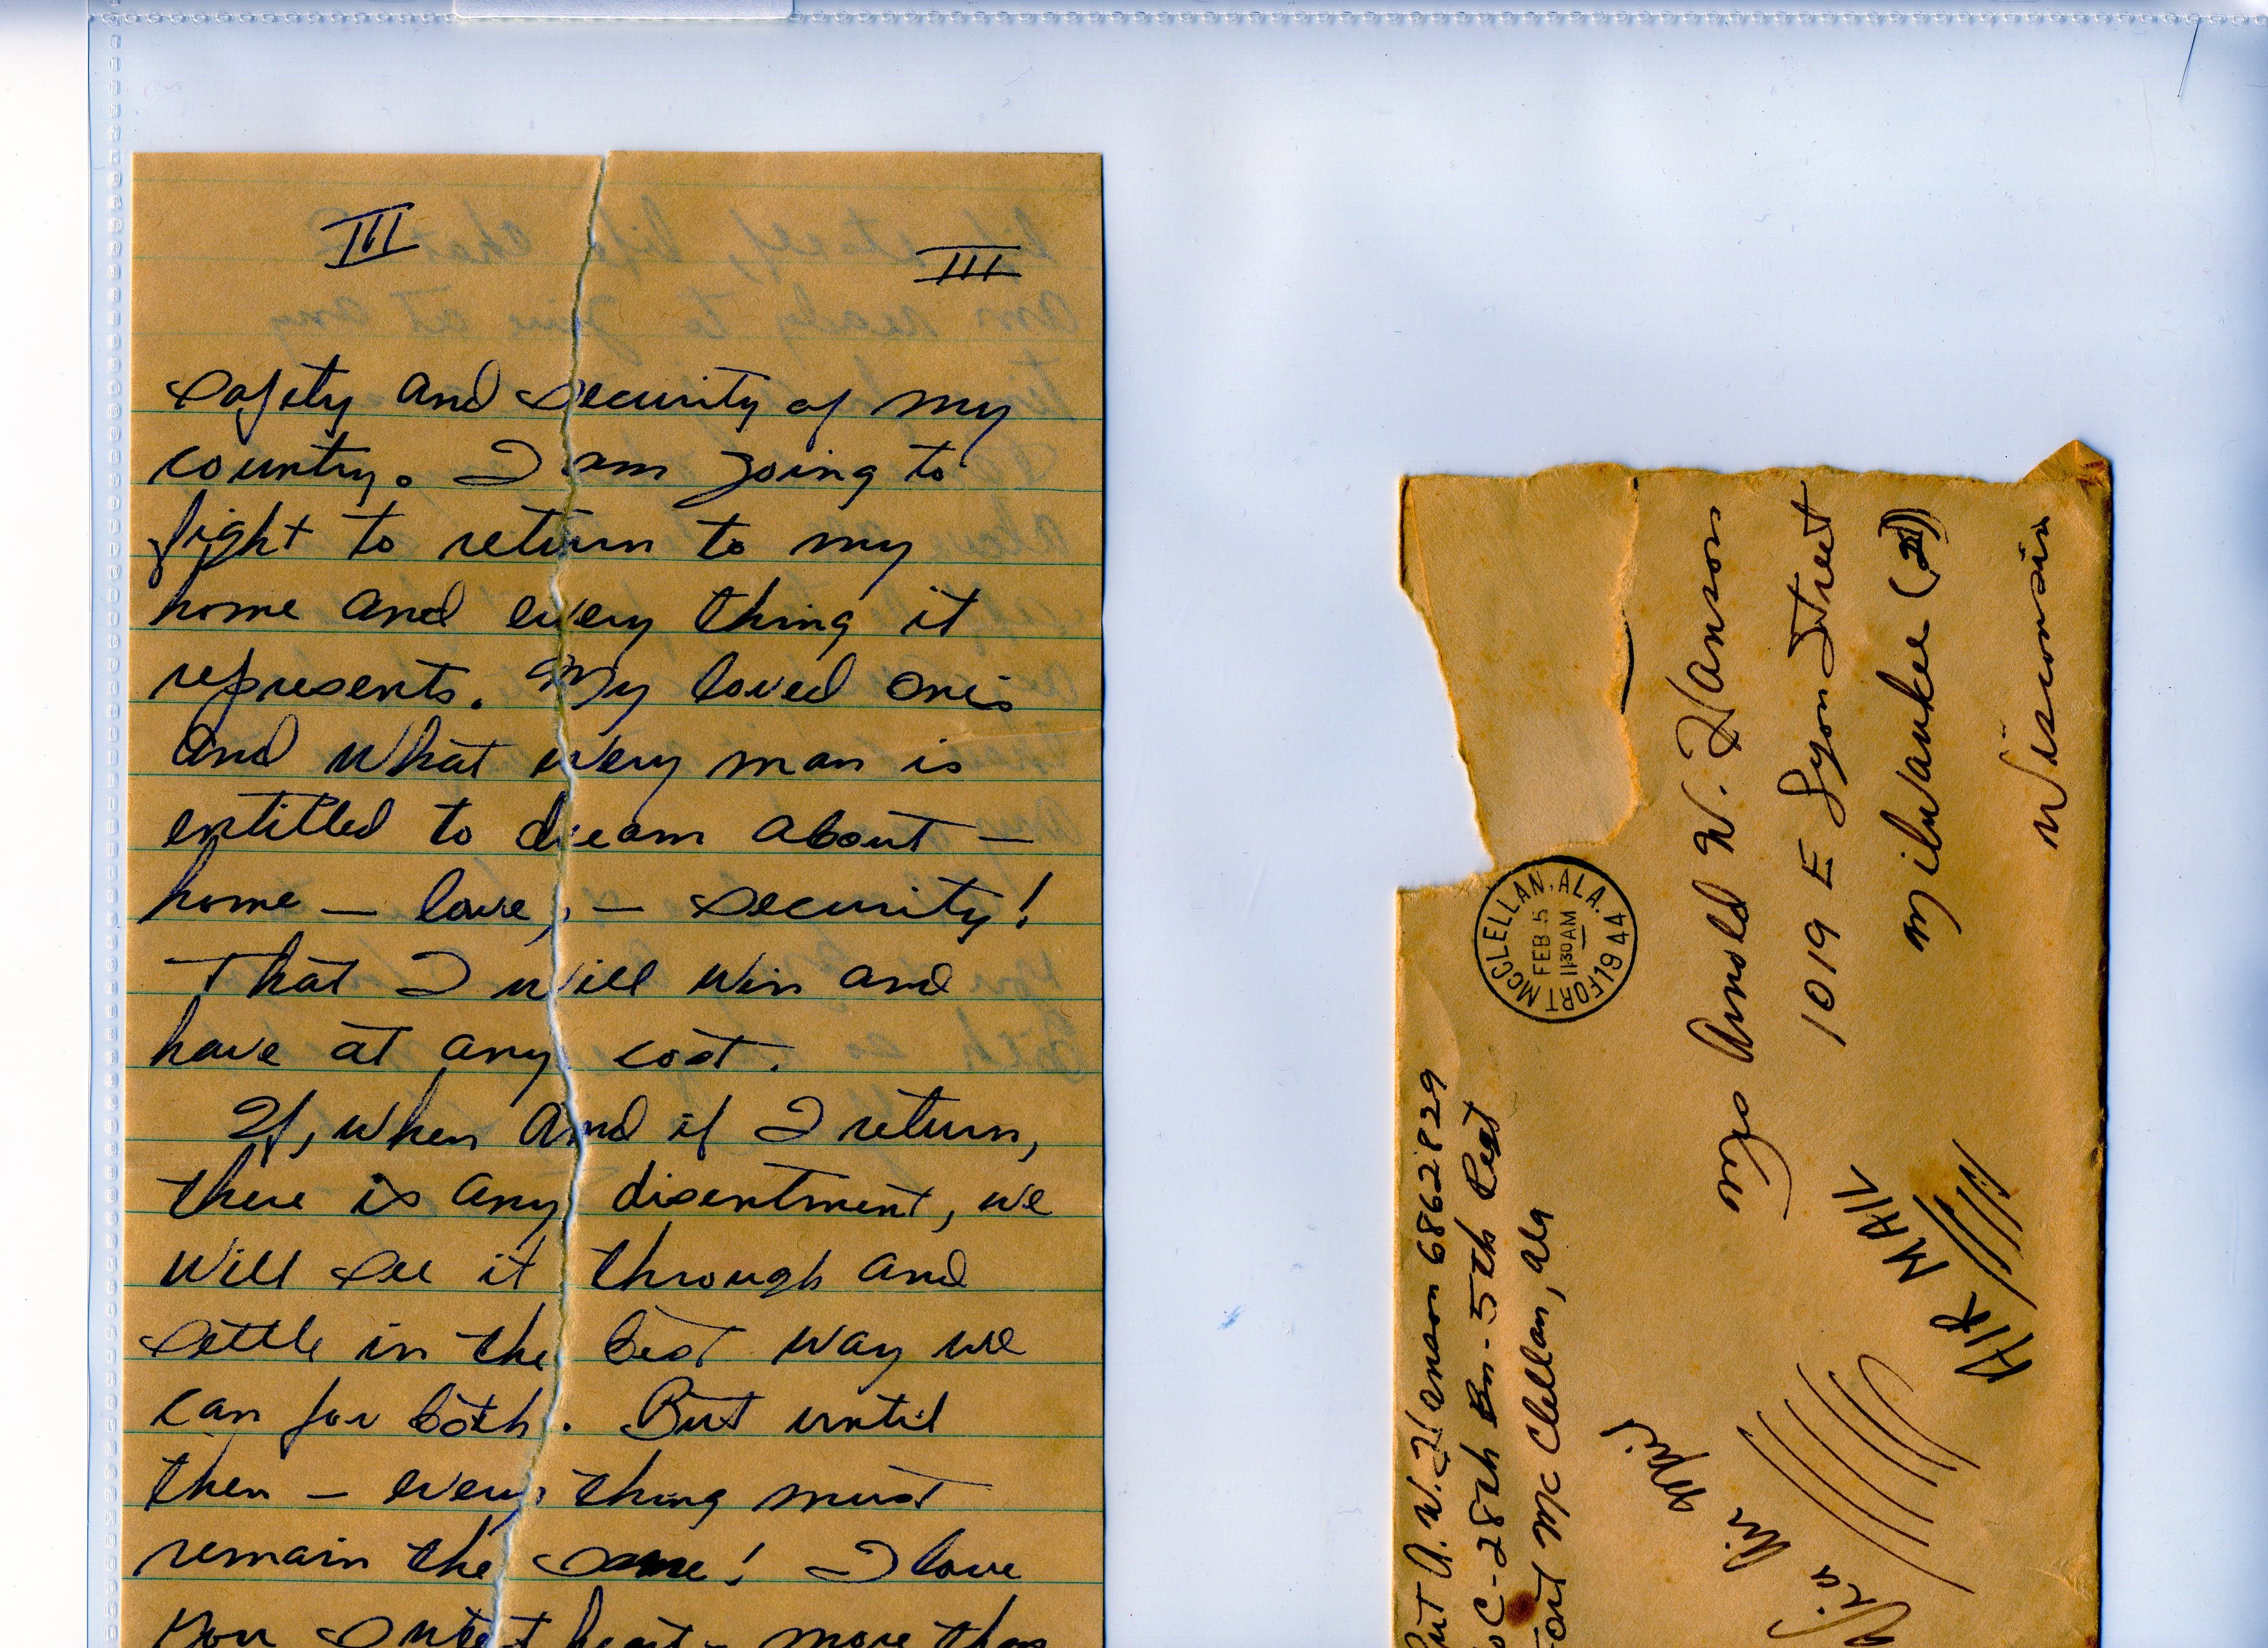 III III
safety and security of my
country. I am going to
fight to return to my
home and every thing it
represents. My loved ones
and what every man is
entitled to dream about —
home — love, — security!
That I will win and
have at any cost.
If, when and if I return,
there is any disentment, we
will see it through and
settle in the best way we
can for both. But until
then — every thing must
remain the same! I love
you sweet heart - more than
Pvt A. W. Hanson 6862829
Co C-28th Bn-5th Regt
Fort McClellan, Ala
FORT MCCLELLAN, ALA.
FEB 5
11 30 AM
1944
Mrs Arnold W. Hanson
1019 E Lyon Street
Milwaukee (2)
Wisconsin
Via Air Mail
AIR MAIL